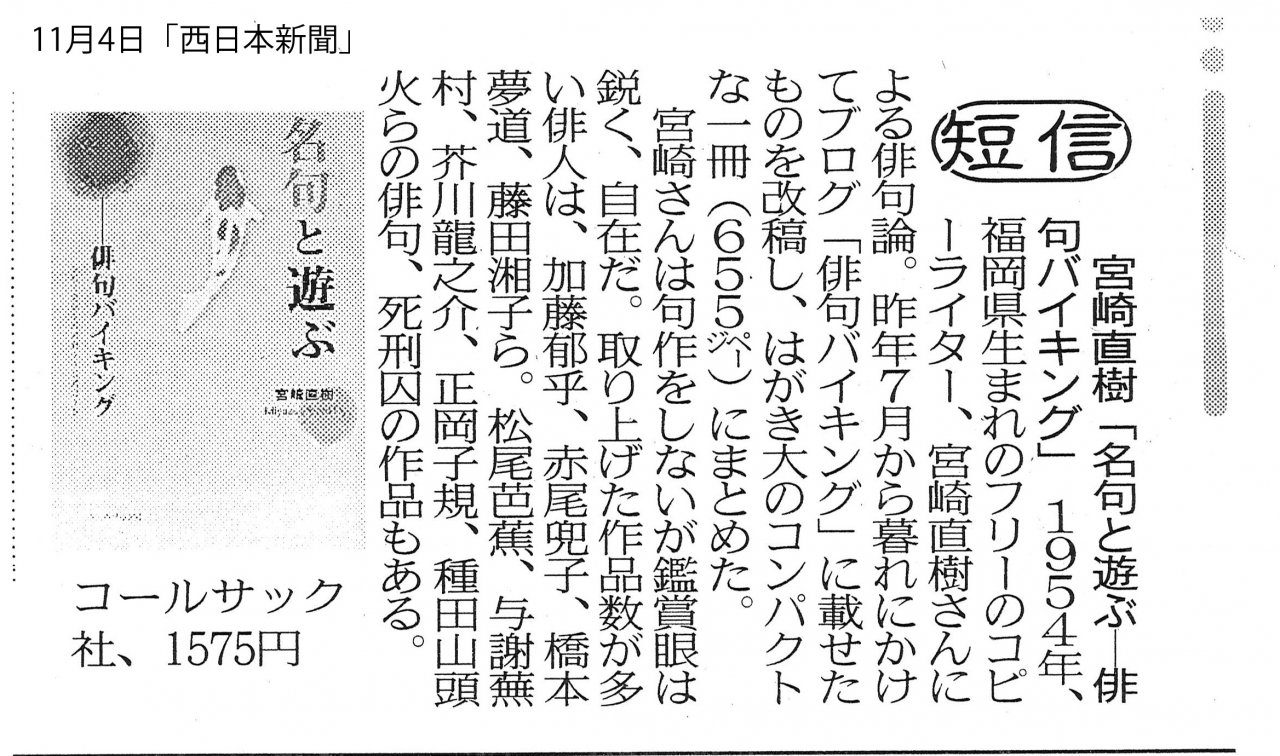 11月4日「西日本新聞」
短信
宮崎直樹「名句と遊ぶ―俳
句バイキング」 1954年、
福岡県生まれのフリーのコピ
ーライター、宮崎直樹さんに
よる俳句論。昨年7月から暮れにかけ
てブログ「俳句バイキング」に載せた
ものを改稿し、はがき大のコンパクト
な一冊（655ページ）にまとめた。
宮崎さんは句作をしないが鑑賞眼は
鋭く、自在だ。取り上げた作品数が多
い俳人は、加藤郁乎、赤尾兜子、橋本
夢道、藤田湘子ら。松尾芭蕉、与謝蕪
村、芥川龍之介、正岡子規、種田山頭
火らの俳句、死刑囚の作品もある。
名句と遊ぶ
――俳句バイキング
宮崎直樹
コールサック
社、1575円